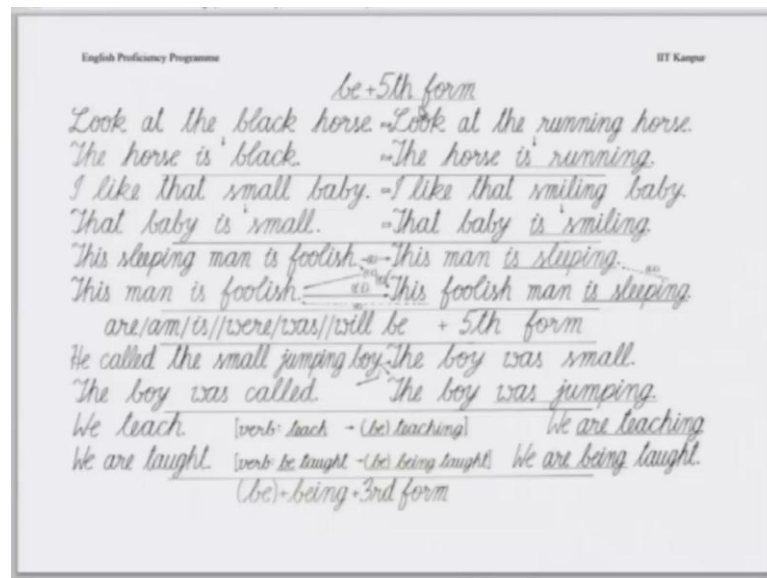 English Proficiency Programme IIT Kanpur
be + 5th form
Look at the black horse. - Look at the running horse.
The horse is black. - The horse is running.
I like that small baby. - I like that smiling baby.
That baby is small. - That baby is smiling.
This sleeping man is foolish. This man is sleeping.
This man is foolish. This foolish man is sleeping.
are/am/is//were/was//will be + 5th form
He called the small jumping boy. The boy was small.
The boy was called. The boy was jumping.
We teach. [verb: teach - (be) teaching] We are teaching
We are taught. [verb: be taught - (be) being taught] We are being taught.
(be) + being + 3rd form